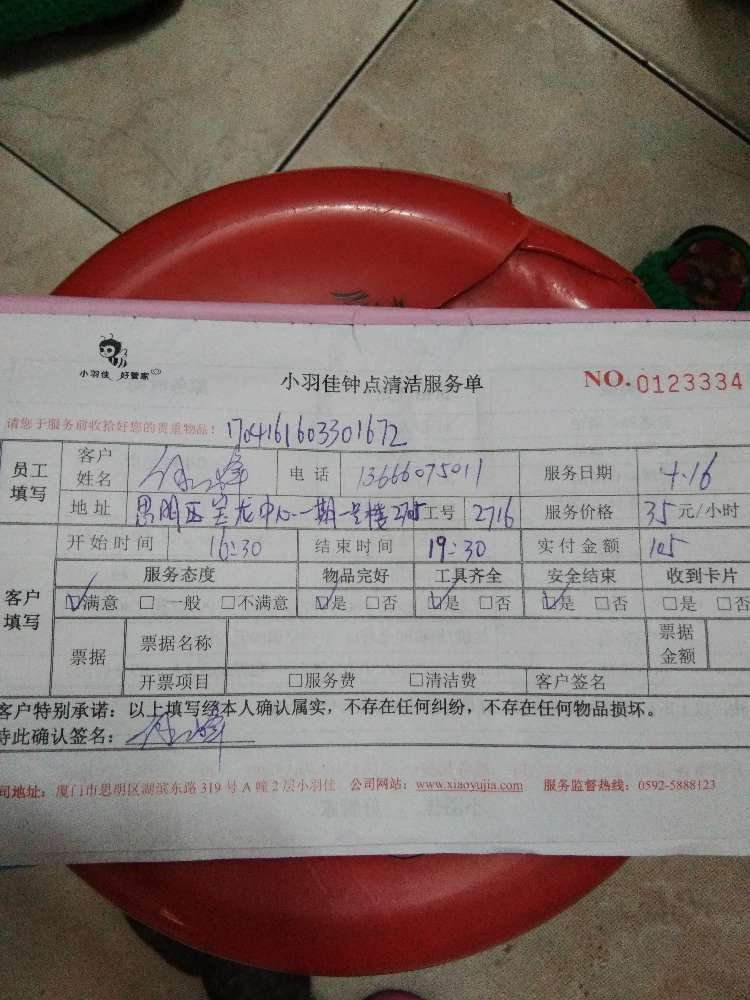 小羽佳 好管家
小羽佳钟点清洁服务单
NO.0123334
请您于服务前收拾好您的贵重物品! 1704161603301672
员工填写 客户姓名 电话 13666075011 服务日期 4.16
地址 思明区宝龙中心一期一号楼2705 工号 2716 服务价格 35元/小时
客户填写 开始时间 16:30 结束时间 19:30 实付金额 105
服务态度 物品完好 工具齐全 安全结束 收到卡片
☑满意 □一般 □不满意 ☑是 □否 ☑是 □否 ☑是 □否 □是 □否
票据 票据名称 票据金额
开票项目 □服务费 □清洁费 客户签名
客户特别承诺:以上填写经本人确认属实,不存在任何纠纷,不存在任何物品损坏。
特此确认签名:
司地址:厦门市思明区湖滨东路319号A幢2层小羽佳 公司网站:www.xiaoyujia.com 服务监督热线:0592-5888123